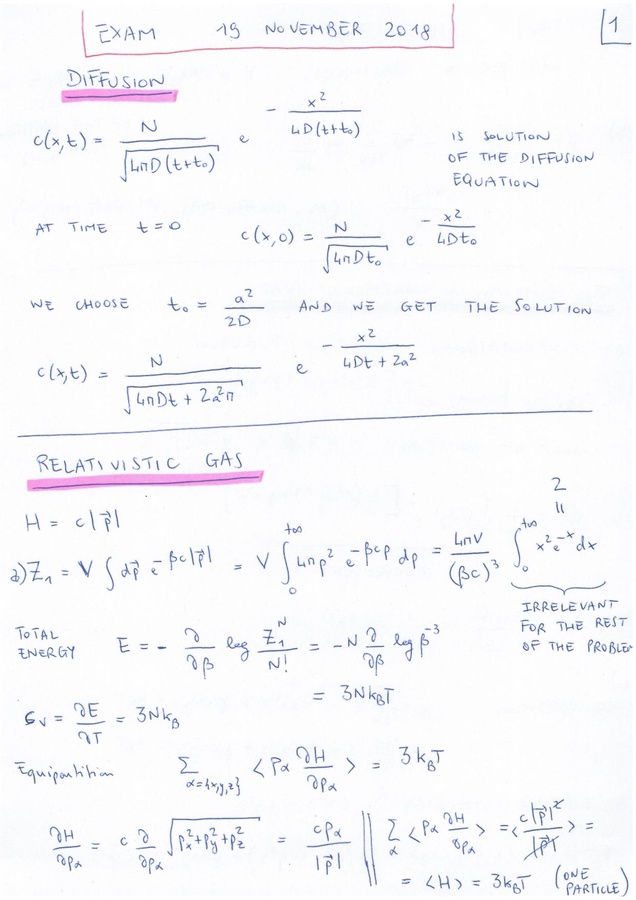 EXAM 19 NOVEMBER 2018
1
DIFFUSION
c(x,t) = N / √(4πD(t+t₀)) e^(-x²/(4D(t+t₀))) IS SOLUTION
OF THE DIFFUSION
EQUATION
AT TIME t=0 c(x,0) = N / √(4πDt₀) e^(-x²/(4Dt₀))
WE CHOOSE t₀ = a²/2D AND WE GET THE SOLUTION
c(x,t) = N / √(4πDt + 2a²π) e^(-x²/(4Dt + 2a²))
RELATIVISTIC GAS
H = c|p⃗|
a) Z₁ = V ∫ dp⃗ e^(-βc|p⃗|) = V ∫₀^(+∞) 4πp² e^(-βcp) dp = 4πV/(βc)³ ∫₀^(+∞) x² e^(-x) dx
2
=
IRRELEVANT
FOR THE REST
OF THE PROBLEM
TOTAL
ENERGY E = - ∂/∂β log Z₁^N/N! = -N ∂/∂β log β^(-3)
= 3Nk_BT
C_V = ∂E/∂T = 3Nk_B
Equipartition Σ_(α={x,y,z}) <p_α ∂H/∂p_α> = 3k_BT
∂H/∂p_α = c ∂/∂p_α √(p_x²+p_y²+p_z²) = cp_α/|p⃗| || Σ_α <p_α ∂H/∂p_α> = <c|p⃗|²/|p⃗|> =
= <H> = 3k_BT (ONE
PARTICLE)